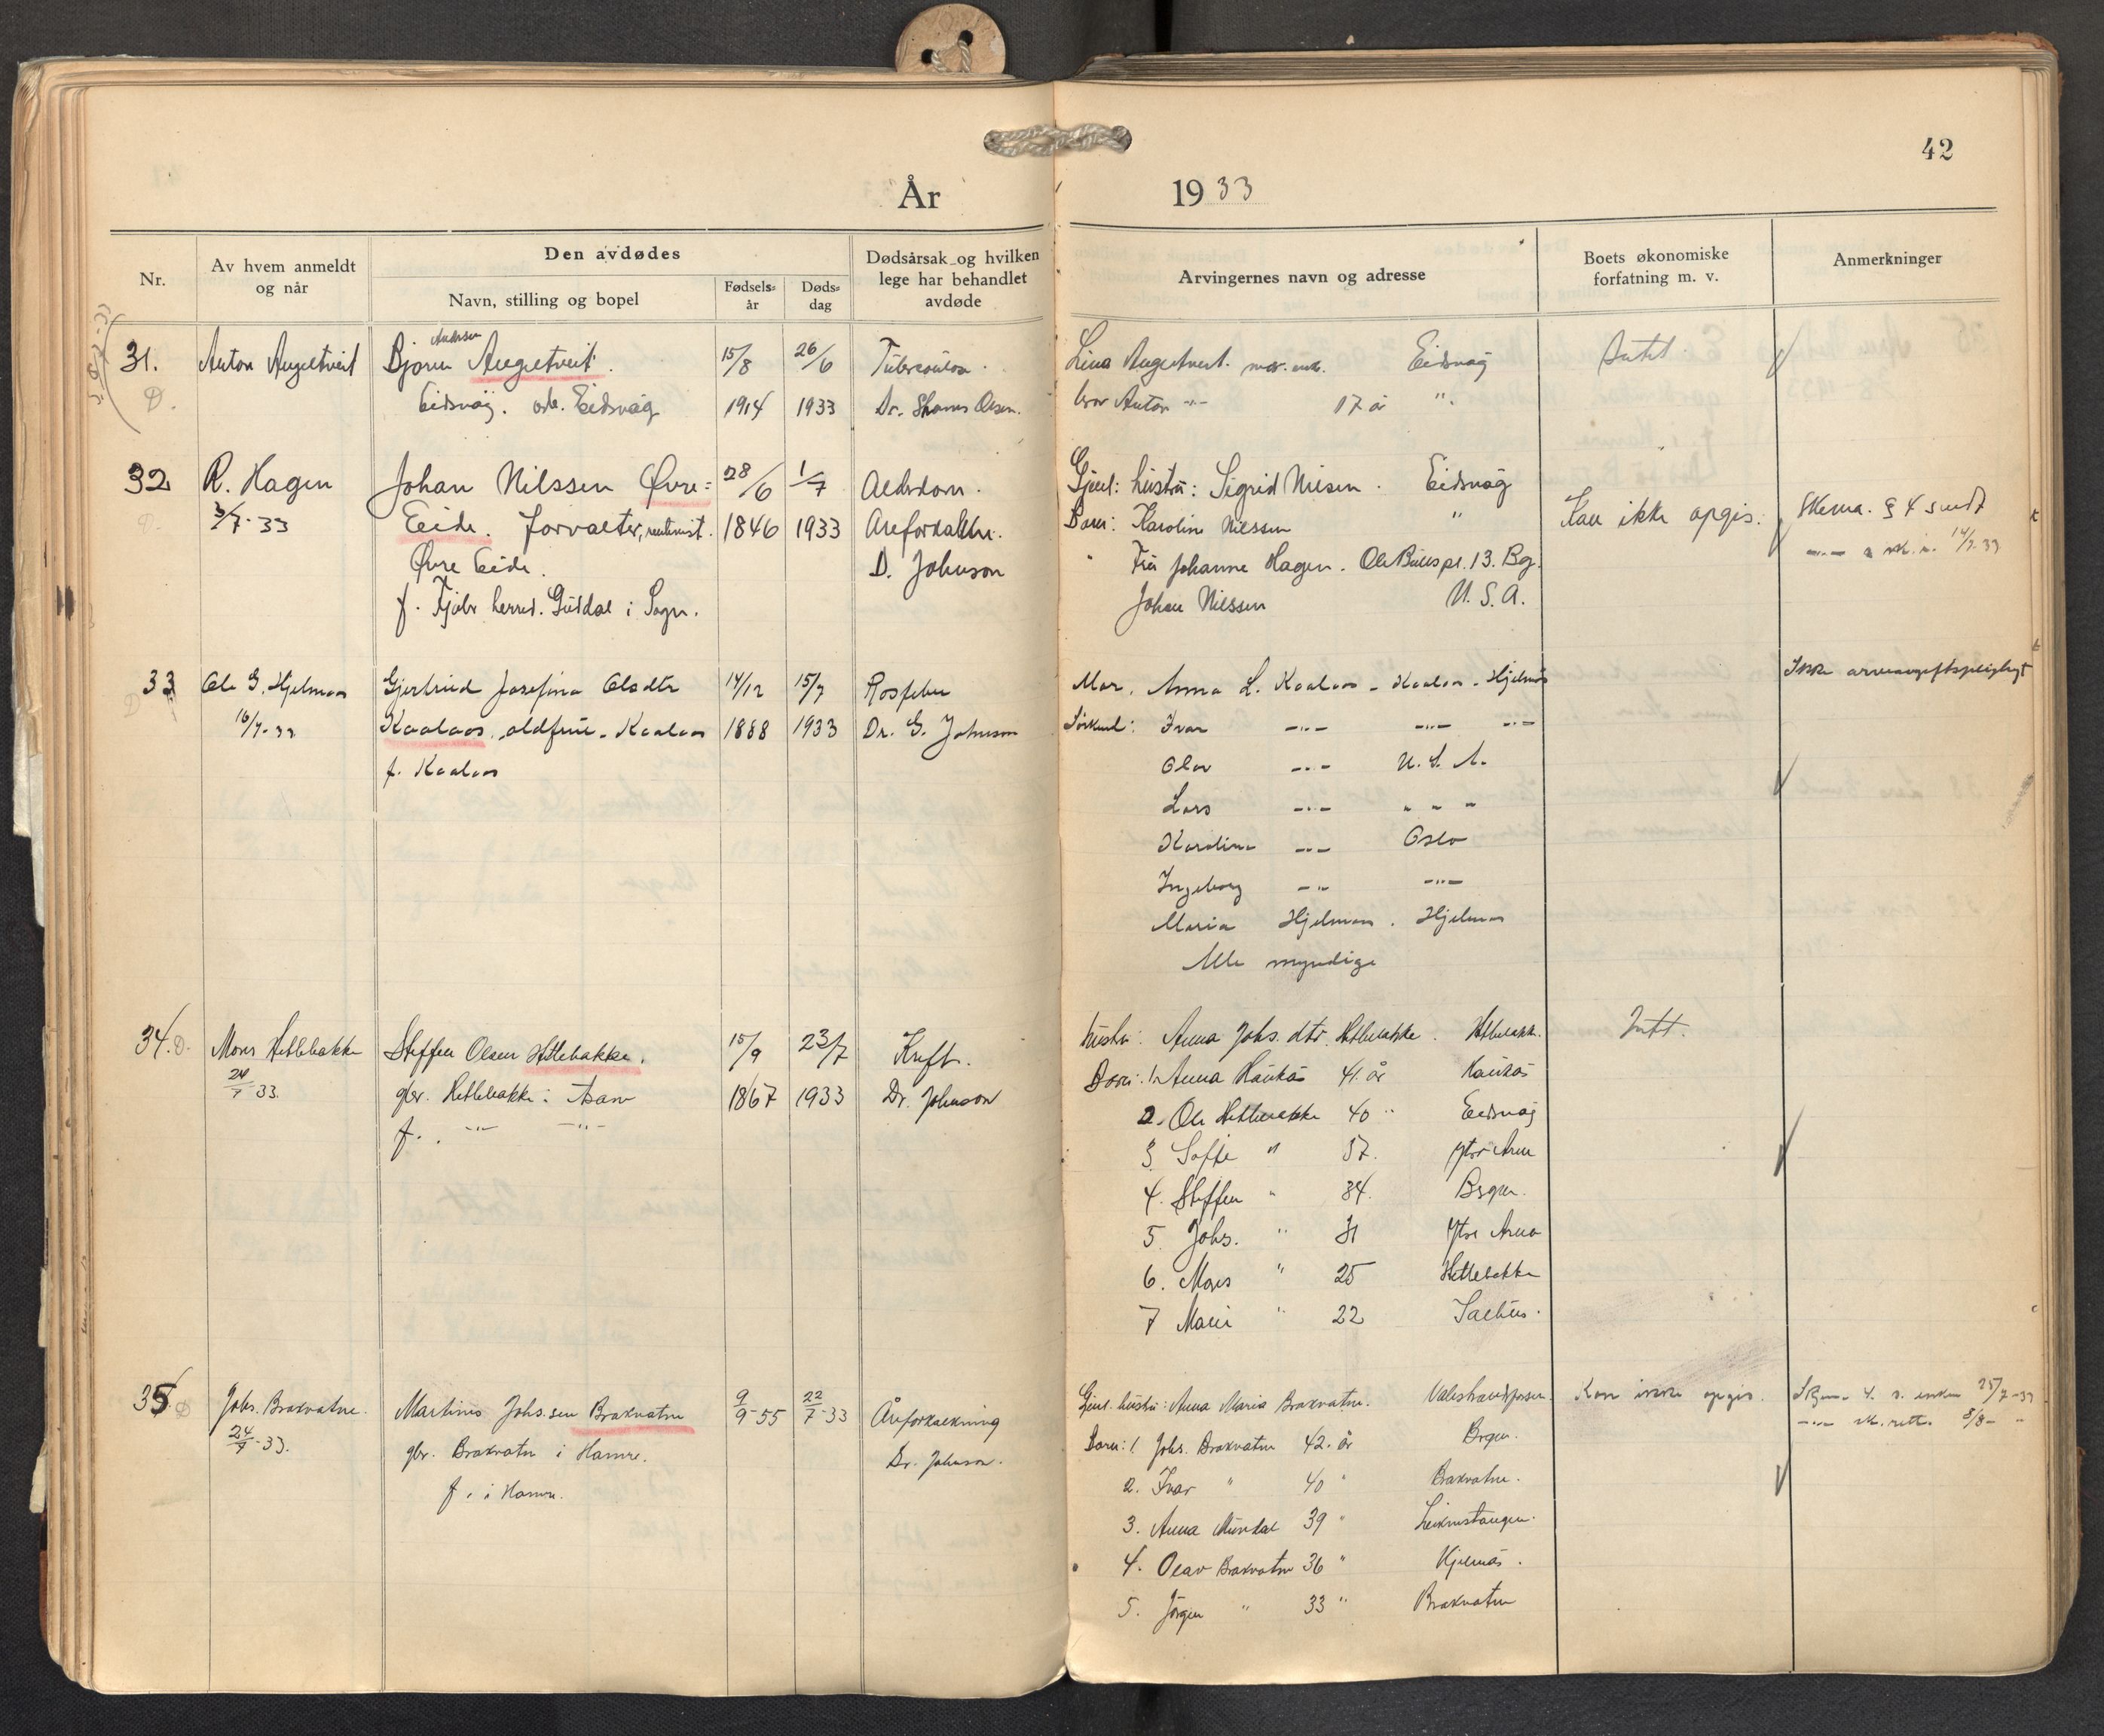 42
År 1933
Nr.
Av hvem anmeldt
og når
Den avdødes
Navn, stilling og bopel
Fødsels-
år
Døds-
dag
Dødsårsak og hvilken
lege har behandlet
avdøde
Arvingernes navn og adresse
Boets økonomiske
forfatning m. v.
Anmerkninger
31. Anton Augetveit Bjørn Andersen Augetveit. 15/8 26/6 Tuberculose. Lina Augetveit. mor. enke. Eidsvåg Intet.
D. Eidsvåg. Eidsvåg 1914 1933 Dr. Olsen. bror Anton -"- 17 år ".
32 R. Hagen Johan Nilssen Øvre= 28/6 1/7 Alderdom. Gjenl: hustru: Sigrid Nilsen. Eidsvåg
3/7-33 Eide. forvalter, 1846 1933 Åreforkalkn. Barn: Karoline Nilssen " Kan ikke opgis. Skema. § 4 sendt
Øvre Eide. D. Johnson " Fru Johanne Hagen. Ole Bulls pl. 13. Bg. 14/7-33
f. Fjaler herred. Guddal i Sogn. Johan Nilssen U. S. A.
33 Ole G. Hjelmaas Gjertrud Josefina Olsdtr 14/12 15/7 Rosfeber Mor. Anna L. Kaalaas - Kaalaas - Hjelmås Ikke arveavgiftspligtigt
16/7-33 Kaalaas, oldfrue - Kaalaas 1888 1933 Dr. G. Johnson Søskend: Ivar -"- -"- -"-
f. Kaalaas
Olav -"- U. S. A.
Lars -"- " " "
Karolina -"- Oslo
Ingeborg -"- -"-
Maria Hjelmaas. Hjelmaas
Alle myndige
34. D. Mons Hetlebakke Steffen Olsen Hetlebakke. 15/9 23/7 Kreft. hustru: Anna Johs. dtr. Hetlebakke. Hetlebakk. Intet.
24/7 33. gbr. Hetlebakke i Åsane 1867 1933 Dr. Johnson Barn: 1. Anna Haukås 41. år Haukås
f. . -"- -"-
2. Ole Hetlebakke 40 " Eidsvåg
3. Soffie " 37. Ytre Arna
4. Steffen " 34. Bergen.
5. Johs. " 31 Ytre Arna
6. Mons " 25 Hetlebakke
7 Marie " 22 Salhus.
35 D Johs. Brakvatne. Martinus Johs.sen Brakvatne 9/9-55 22/7-33 Åreforkalkning Gjenl. hustru: Anna Maria Brakvatne. Valestrandfossen Kan ikke opgis. 25/7-33
24/7-33. gbr. Brakvatn i Hamre. Dr. Johnson. Barn: 1. Johs. Brakvatne 42. år Bergen. -"- 8/8- "
f. i Hamre.
2. Ivar " 40 " Brakvatne.
3. Anna Mundal 39 "
4. Olav Brakvatne 36 " Hjelmås.
5. Jørgen " 33 " Brakvatne